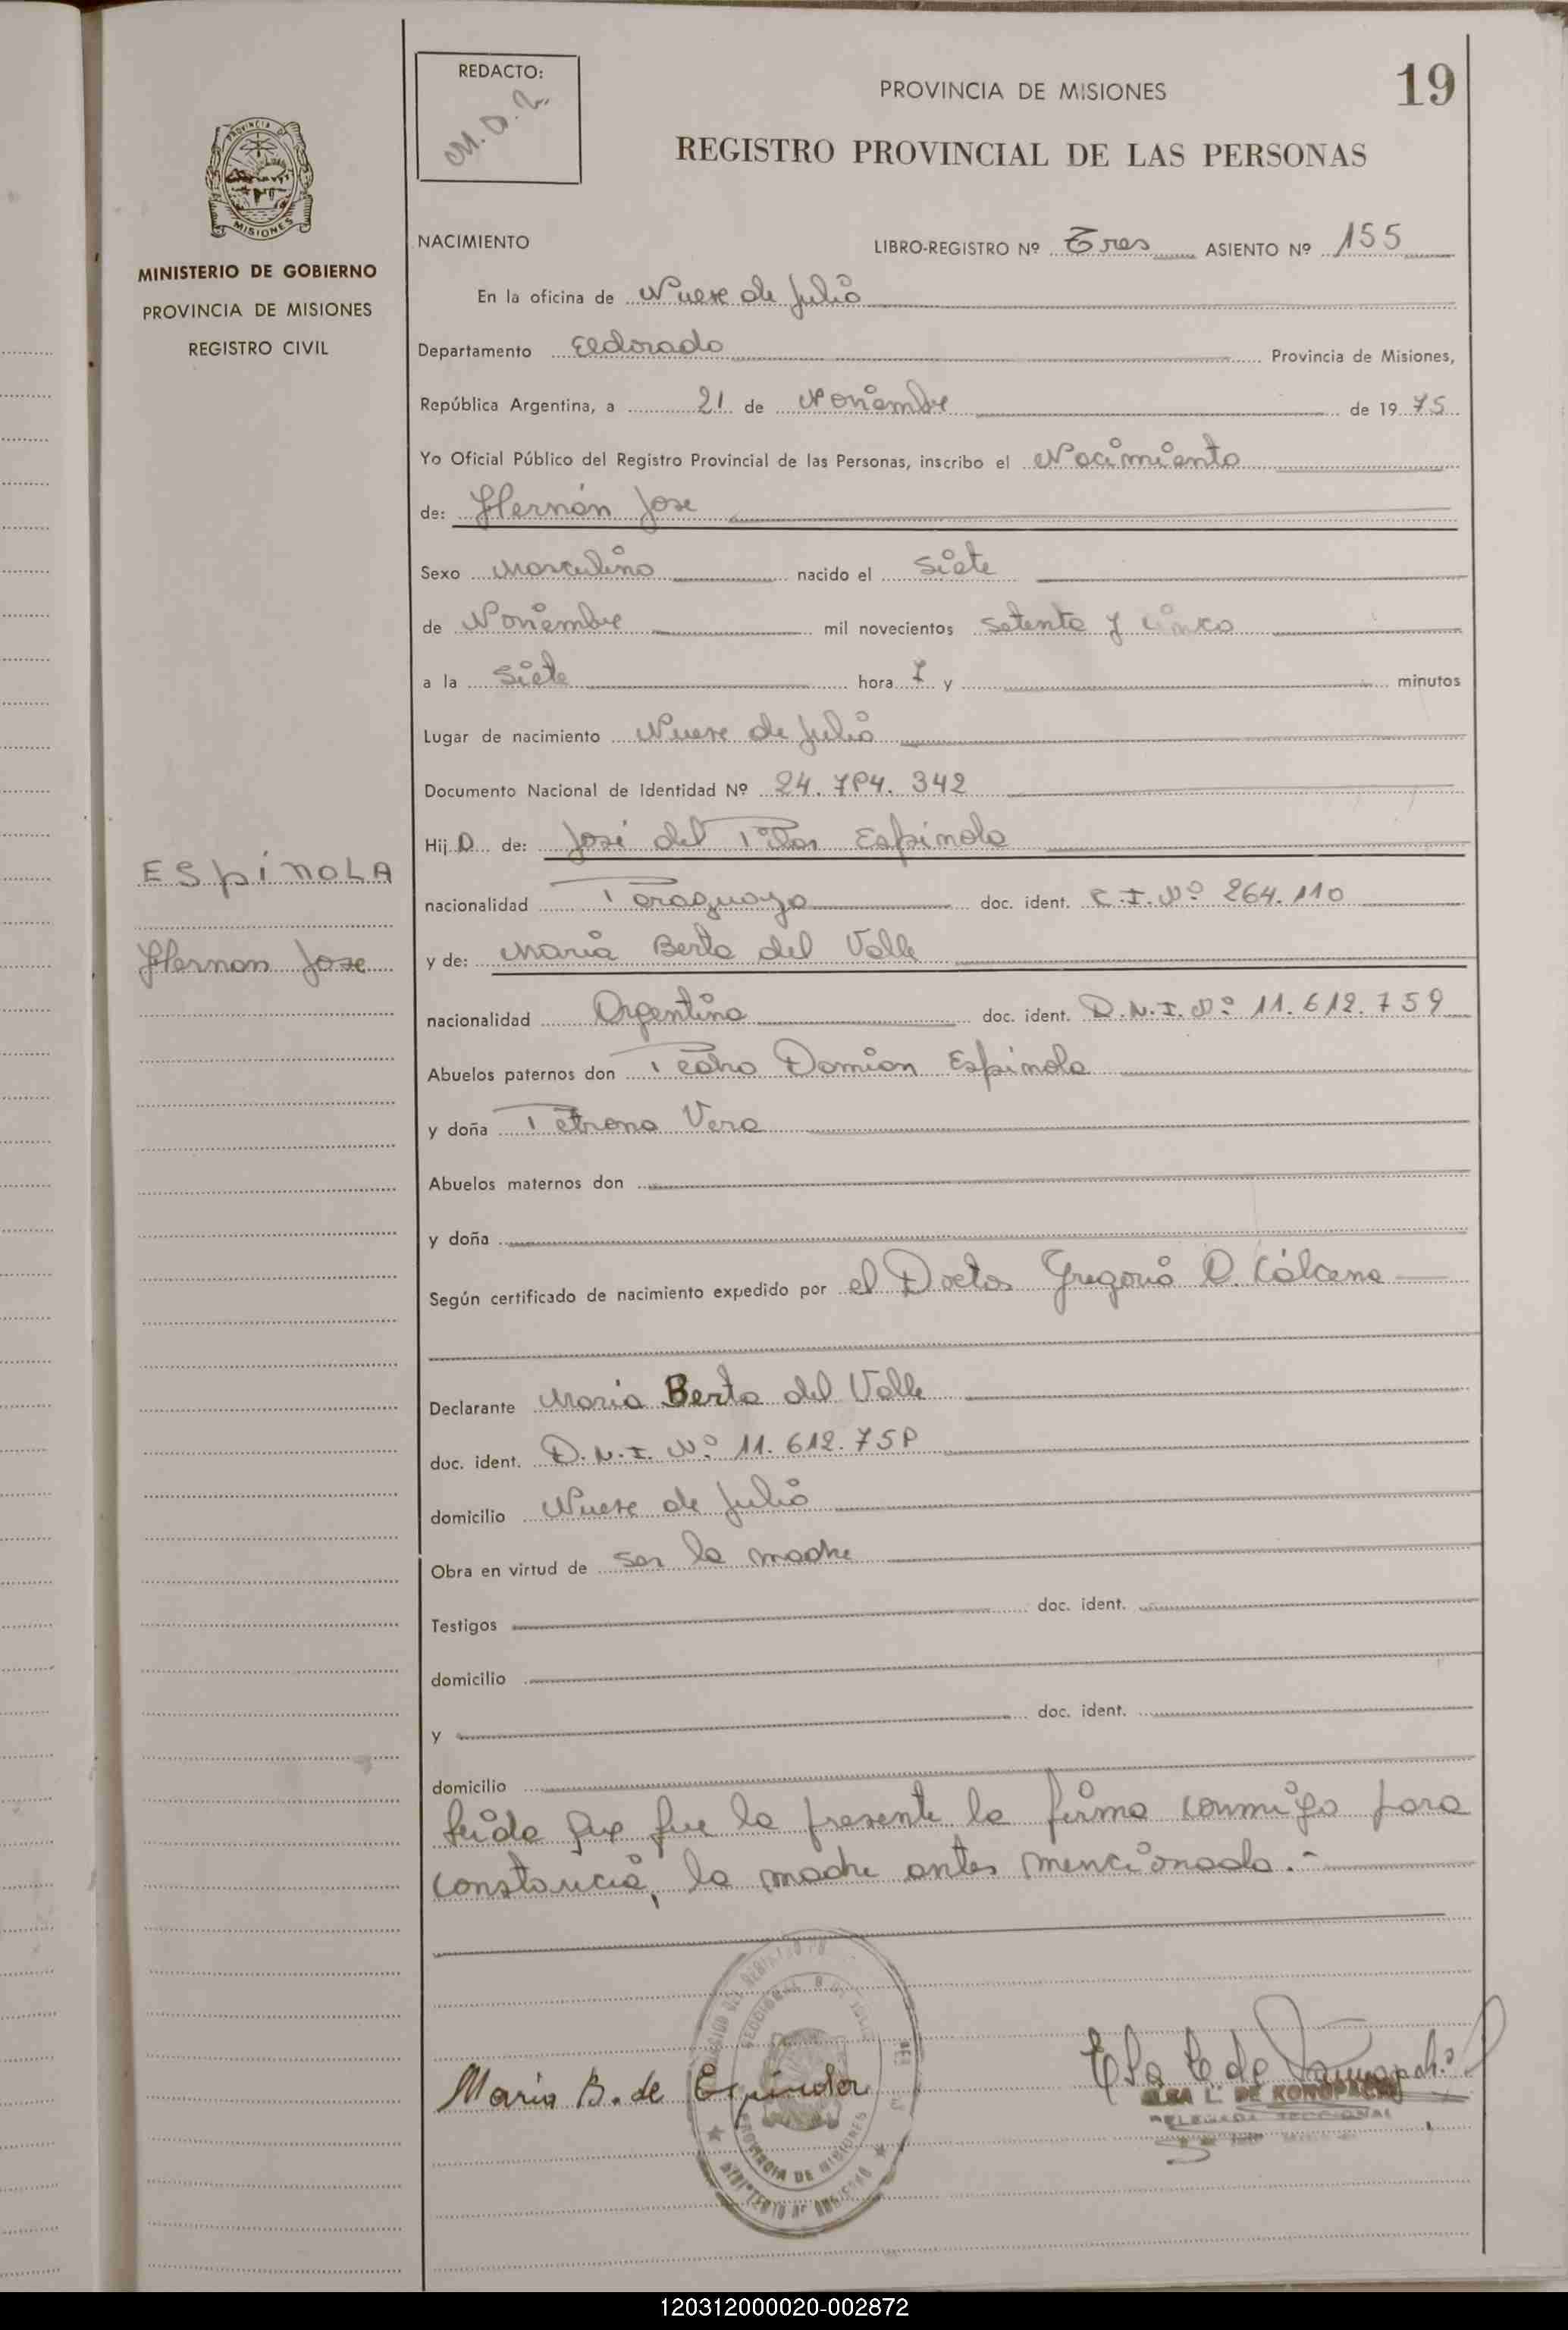 REDACTO:
M.D.R.
PROVINCIA DE MISIONES
19
REGISTRO PROVINCIAL DE LAS PERSONAS
PROVINCIA DE
MISIONES
MINISTERIO DE GOBIERNO
PROVINCIA DE MISIONES
REGISTRO CIVIL
NACIMIENTO
LIBRO-REGISTRO Nº Tres ASIENTO Nº 155
En la oficina de Nueve de Julio
Departamento Eldorado Provincia de Misiones,
República Argentina, a 21 de Noviembre de 1975
Yo Oficial Público del Registro Provincial de las Personas, inscribo el Nacimiento
de: Hernán Jose
Sexo Masculino nacido el siete
de Noviembre mil novecientos setenta y cinco
a la siete hora 7 y minutos
Lugar de nacimiento Nueve de Julio
Documento Nacional de Identidad Nº 24.794.342
Hijo de: José del Pilar Espinola
ESpíNOLA
Hernan Jose
nacionalidad Paraguaya doc. ident. C.I.Nº 264.110
y de: Maria Berta del Valle
nacionalidad Argentina doc. ident. D.N.I.Nº 11.612.759
Abuelos paternos don Pedro Damian Espinola
y doña Petrona Vera
Abuelos maternos don
y doña
Según certificado de nacimiento expedido por el Doctor Gregorio D. Cálcena
Declarante Maria Berta del Valle
doc. ident. D.N.I. Nº 11.612.759
domicilio Nueve de Julio
Obra en virtud de ser la madre
Testigos doc. ident.
domicilio
y doc. ident.
domicilio
Leida que fue la presente la firma conmigo para
constancia, la madre antes mencionada.-
SECCIONAL 9 DE JULIO
PROVINCIA DE MISIONES
MINISTERIO DE GOBIERNO
Maria B. de Espindola
ELSA L. DE KONOPACKI
DELEGADA SECCIONAL
120312000020-002872